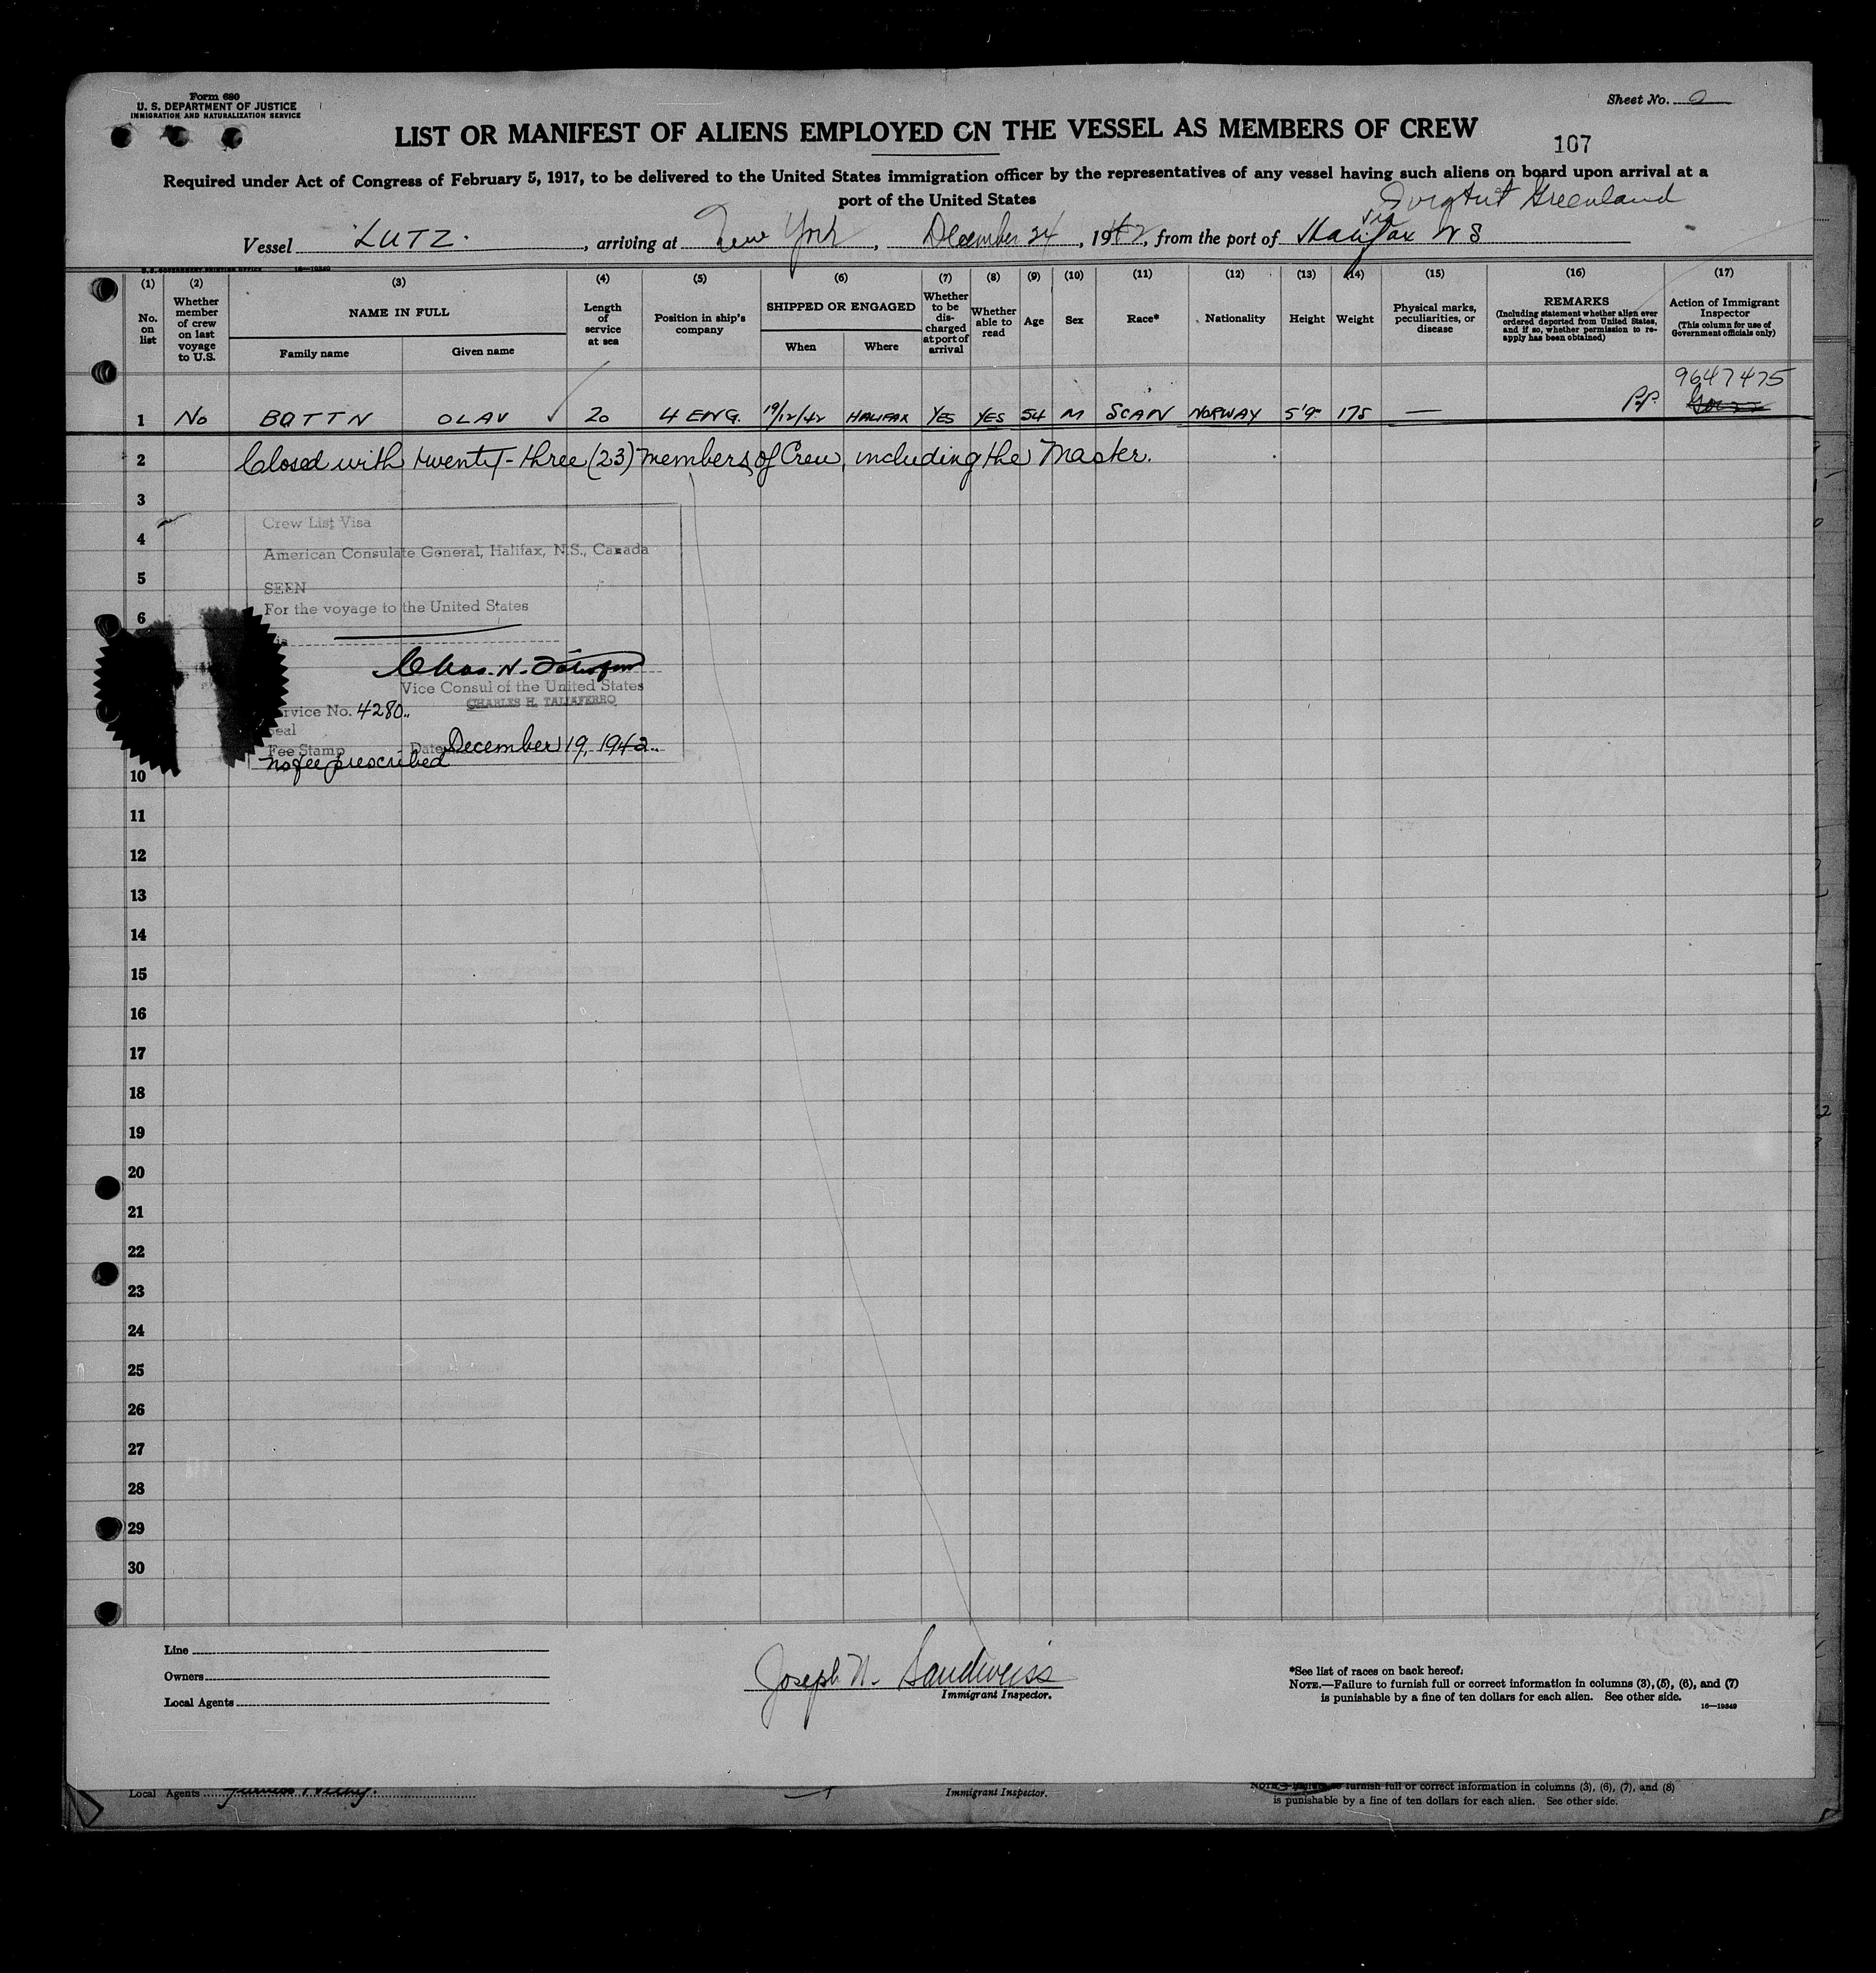 Form 680
U. S. DEPARTMENT OF JUSTICE
IMMIGRATION AND NATURALIZATION SERVICE
Sheet No. 2
LIST OR MANIFEST OF ALIENS EMPLOYED ON THE VESSEL AS MEMBERS OF CREW
107
Required under Act of Congress of February 5, 1917, to be delivered to the United States immigration officer by the representatives of any vessel having such aliens on board upon arrival at a
port of the United States
Greenland
via
Vessel LUTZ. , arriving at New York , December 24 , 1942, from the port of Halifax N S
U. S. GOVERNMENT PRINTING OFFICE 16—19349
(1) (2) (3) (4) (5) (6) (7) (8) (9) (10) (11) (12) (13) (14) (15) (16) (17)
No. on list
Whether member of crew on last voyage to U.S.
NAME IN FULL
Family name
Given name
Length of service at sea
Position in ship's company
SHIPPED OR ENGAGED
When
Where
Whether to be discharged at port of arrival
Whether able to read
Age
Sex
Race*
Nationality
Height
Weight
Physical marks, peculiarities, or disease
REMARKS
(Including statement whether alien ever ordered deported from United States, and if so, whether permission to re-apply has been obtained)
Action of Immigrant Inspector
(This column for use of Government officials only)
9647475
1 No BOTTN OLAV ✓ 20 4 ENG. 19/12/42 HALIFAX YES YES 54 M SCAN NORWAY 5'9" 175 — PP.
2 Closed with twenty-three (23) members of Crew, including the Master.
3
Crew List Visa
4
American Consulate General, Halifax, N.S., Canada
5
SEEN
For the voyage to the United States
6
Chas. H. Taliaferro
Vice Consul of the United States
CHARLES H. TALIAFERRO
Service No. 4280..
Seal
Fee Stamp Date December 19, 1942..
No fee prescribed
10
11
12
13
14
15
16
17
18
19
20
21
22
23
24
25
26
27
28
29
30
Line
Owners
Local Agents
Joseph N. Sandweiss
Immigrant Inspector.
*See list of races on back hereof.
NOTE.—Failure to furnish full or correct information in columns (3), (5), (6), and (7)
is punishable by a fine of ten dollars for each alien. See other side.
16—19349
Local Agents
Immigrant Inspector.
NOTE.—Failure to furnish full or correct information in columns (3), (6), (7), and (8)
is punishable by a fine of ten dollars for each alien. See other side.